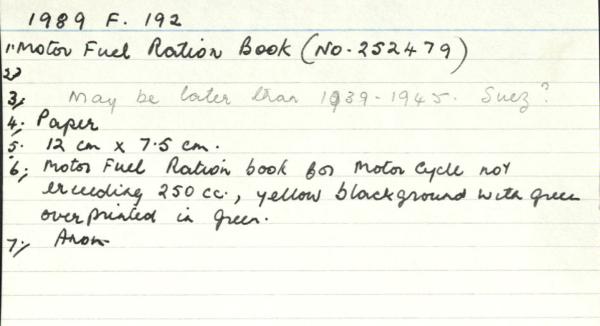 1989 F. 192
1. Motor Fuel Ration Book (No. 252479)
2,
3, May be later than 1939-1945. Suez?
4. Paper
5. 12 cm x 7.5 cm.
6, Motor Fuel Ration book for Motor Cycle not
exceeding 250 cc., yellow blackground with green
overprinted in green.
7, Anon